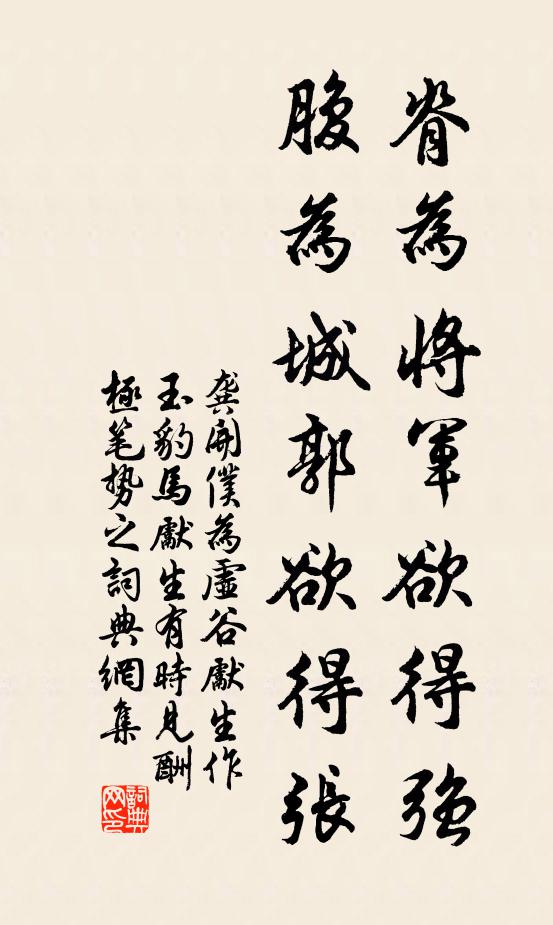 脊為將軍欲得强
腹為城郭欲得張
龔開僕為虛谷獻生作
玉豹馬獻生有時見酬
極笔势之詞典網集
詞典网印